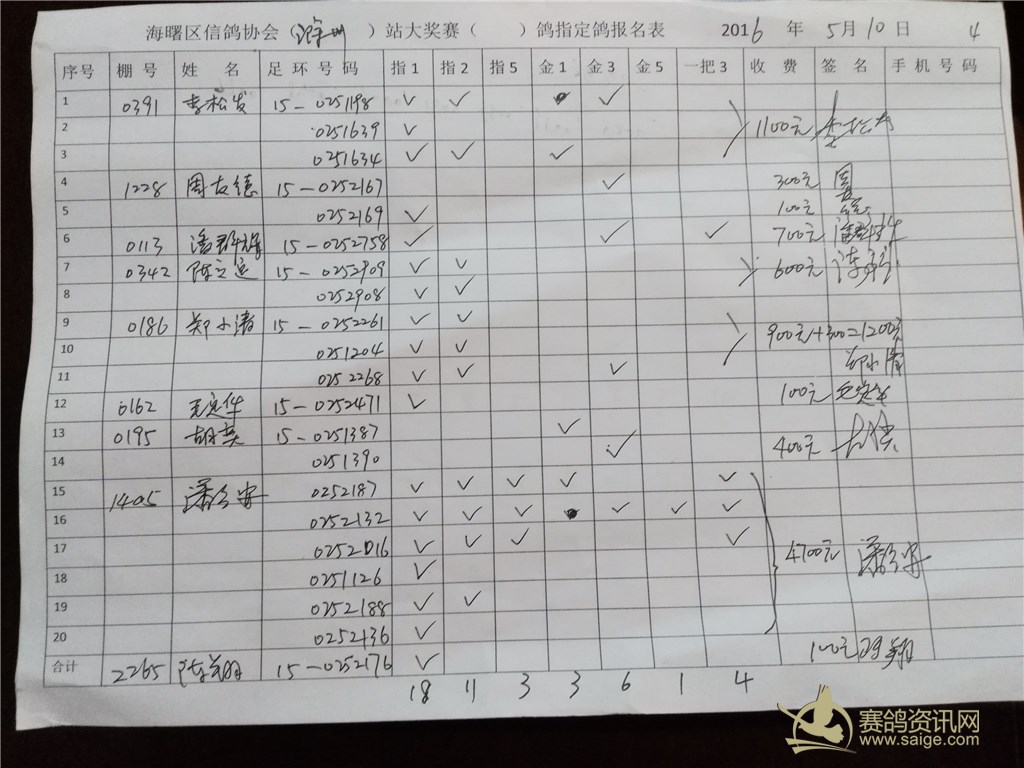 海曙区信鸽协会（滁州）站大奖赛（ ）鸽指定鸽报名表 2016年5月10日 4
序号 棚号 姓名 足环号码 指1 指2 指5 金1 金3 金5 一把3 收费 签名 手机号码
1 0391 李松发 15-0251198 ✓ ✓ ✓
2 0251639 ✓ 1100元
3 0251634 ✓ ✓ ✓
4 1228 周友德 15-0252167 ✓ 300元
5 0252169 ✓ 100元
6 0113 潘群辉 15-0252758 ✓ ✓ ✓ 700元
7 0342 15-0252909 ✓ ✓ 600元
8 0252908 ✓ ✓
9 0186 郑小清 15-0252261 ✓ ✓ 900元+300=1200元
10 0251204 ✓ ✓ 郑小清
11 0252268 ✓ ✓ ✓
12 0162 15-0252471 ✓ 100元
13 0195 胡英 15-0251387 ✓
14 0251390 ✓ 400元
15 1405 0252187 ✓ ✓ ✓ ✓ ✓
16 0252132 ✓ ✓ ✓ ✓ ✓ ✓
17 0252016 ✓ ✓ ✓ ✓ 4700元
18 0251126 ✓
19 0252188 ✓ ✓
20 0252436 ✓
合计 2265 15-0252176 ✓ 100元
18 11 3 3 6 1 4
赛鸽资讯网
www.saige.com